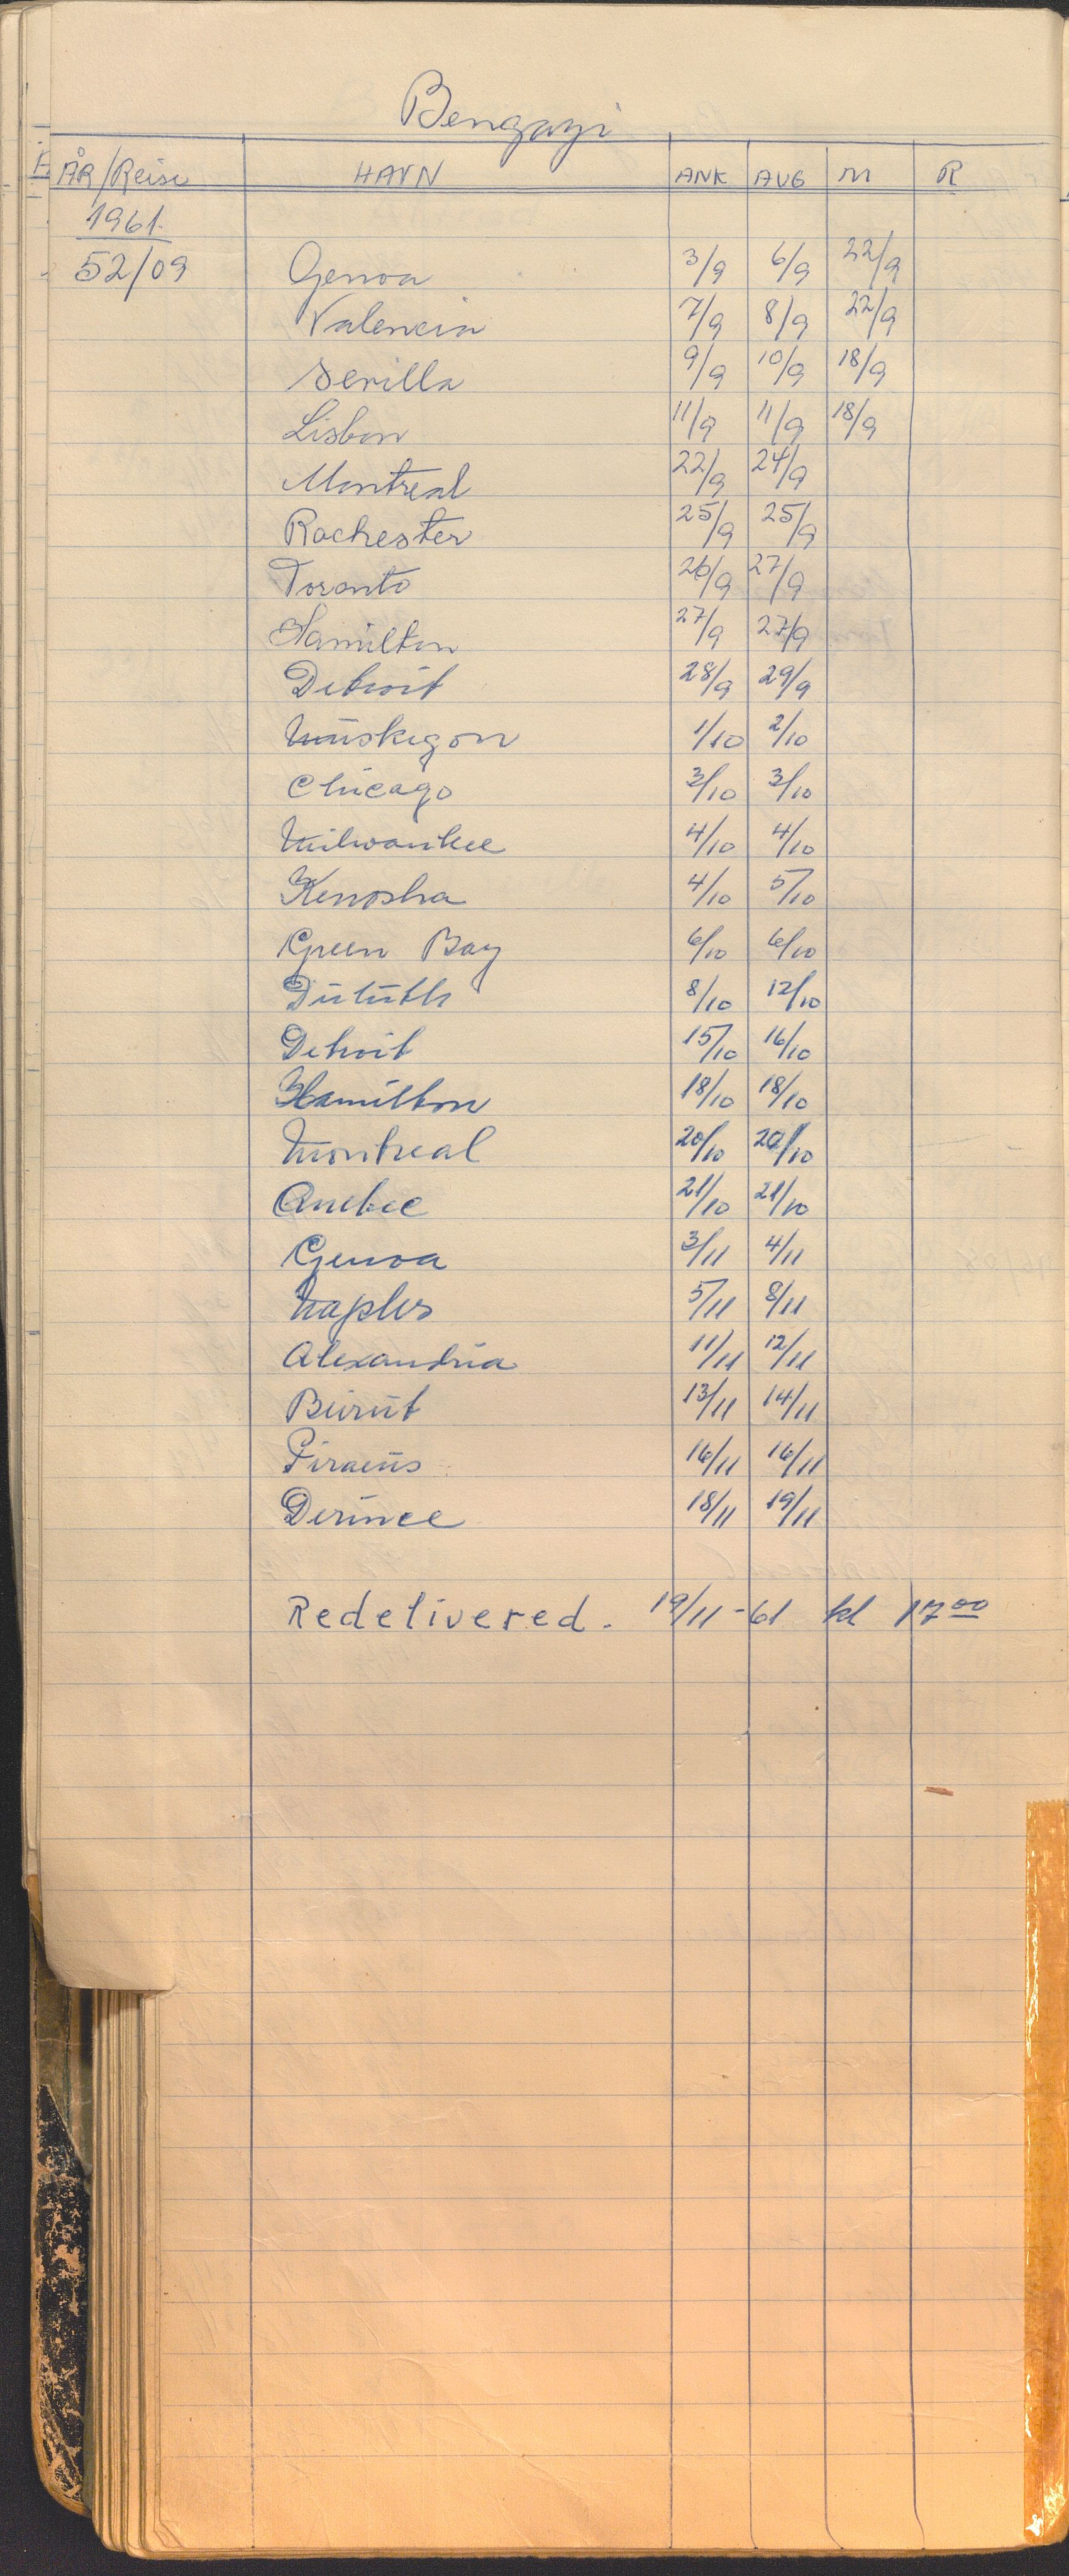 Bengazi
ÅR/Reise HAVN ANK AVG M R
1961.
52/09 Genoa 3/9 6/9 22/9
Valencia 7/9 8/9 22/9
Sevilla 9/9 10/9 18/9
Lisbon 11/9 11/9 18/9
Montreal 22/9 24/9
Rochester 25/9 25/9
Toronto 26/9 27/9
Hamilton 27/9 27/9
Detroit 28/9 29/9
Muskegon 1/10 2/10
Chicago 3/10 3/10
Milwaukee 4/10 4/10
Kenosha 4/10 5/10
Green Bay 6/10 6/10
Duluth 8/10 12/10
Detroit 15/10 16/10
Hamilton 18/10 18/10
Montreal 20/10 20/10
Quebec 21/10 21/10
Genoa 3/11 4/11
Naples 5/11 8/11
Alexandria 11/11 12/11
Beirut 13/11 14/11
Piraeus 16/11 16/11
Derince 18/11 19/11
Redelivered. 19/11-61 kl 1700